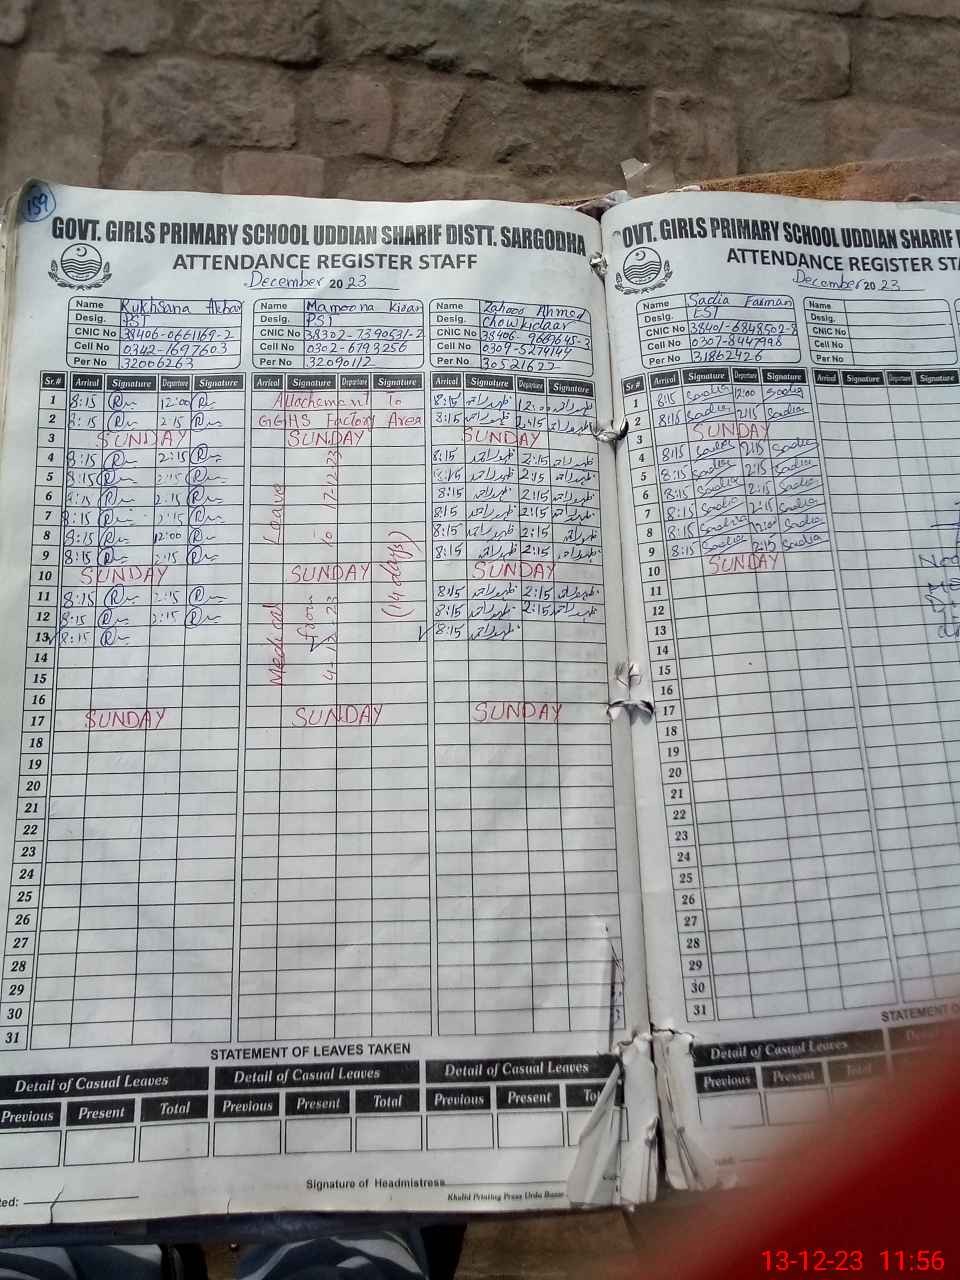 159
GOVT. GIRLS PRIMARY SCHOOL UDDIAN SHARIF DISTT. SARGODHA
ATTENDANCE REGISTER STAFF
December 2023
Name Rukhsana Akbar
Desig. PST
CNIC No 38406-0661169-2
Cell No 0342-1697603
Per No 32006263
Name Mamoona Kiran
Desig. PST
CNIC No 38302-7390531-2
Cell No 0302-6793256
Per No 32090112
Name Zahoor Ahmed
Desig. Chowkidaar
CNIC No 38406-9669645-3
Cell No 0307-5279144
Per No 30521622
Sr.# Arrival Signature Departure Signature Arrival Signature Departure Signature Arrival Signature Departure Signature
1 8:15 12:00 Attachement To 8:15 12:00
2 8:15 2:15 GGHS Factory Area 8:15 2:15
3 SUNDAY SUNDAY SUNDAY
4 8:15 2:15 8:15 2:15
5 8:15 2:15 8:15 2:15
6 8:15 2:15 8:15 2:15
7 8:15 2:15 8:15 2:15
8 8:15 12:00 8:15 2:15
9 8:15 2:15 8:15 2:15
10 SUNDAY SUNDAY SUNDAY
11 8:15 2:15 8:15 2:15
12 8:15 2:15 8:15 2:15
13 8:15 8:15
14
15
16
17 SUNDAY SUNDAY SUNDAY
18
19
20
21
22
23
24
25
26
27
28
29
30
31
Medical Leave
from 4-12-23 to 17-12-23
(14 days)
STATEMENT OF LEAVES TAKEN
Detail of Casual Leaves Detail of Casual Leaves Detail of Casual Leaves
Previous Present Total Previous Present Total Previous Present
Signature of Headmistress
Khalid Printing Press Urdu Bazar
OVT. GIRLS PRIMARY SCHOOL UDDIAN SHARIF
ATTENDANCE REGISTER STA
December 2023
Name Sadia Farman
Desig. EST
CNIC No 38401-6848502-8
Cell No 0307-8447998
Per No 31862426
Name
Desig.
CNIC No
Cell No
Per No
Sr.# Arrival Signature Departure Signature Arrival Signature Departure Signature
1 8:15 Sadia 12:00 Sadia
2 8:15 Sadia 2:15 Sadia
3 SUNDAY
4 8:15 Sadia 2:15 Sadia
5 8:15 Sadia 2:15 Sadia
6 8:15 Sadia 2:15 Sadia
7 8:15 Sadia 2:15 Sadia
8 8:15 Sadia 12:00 Sadia
9 8:15 Sadia 2:15 Sadia
10 SUNDAY
11
12
13
14
15
16
17
18
19
20
21
22
23
24
25
26
27
28
29
30
31
STATEMENT O
Detail of Casual Leaves
Previous Present Total Previous
13-12-23 11:56